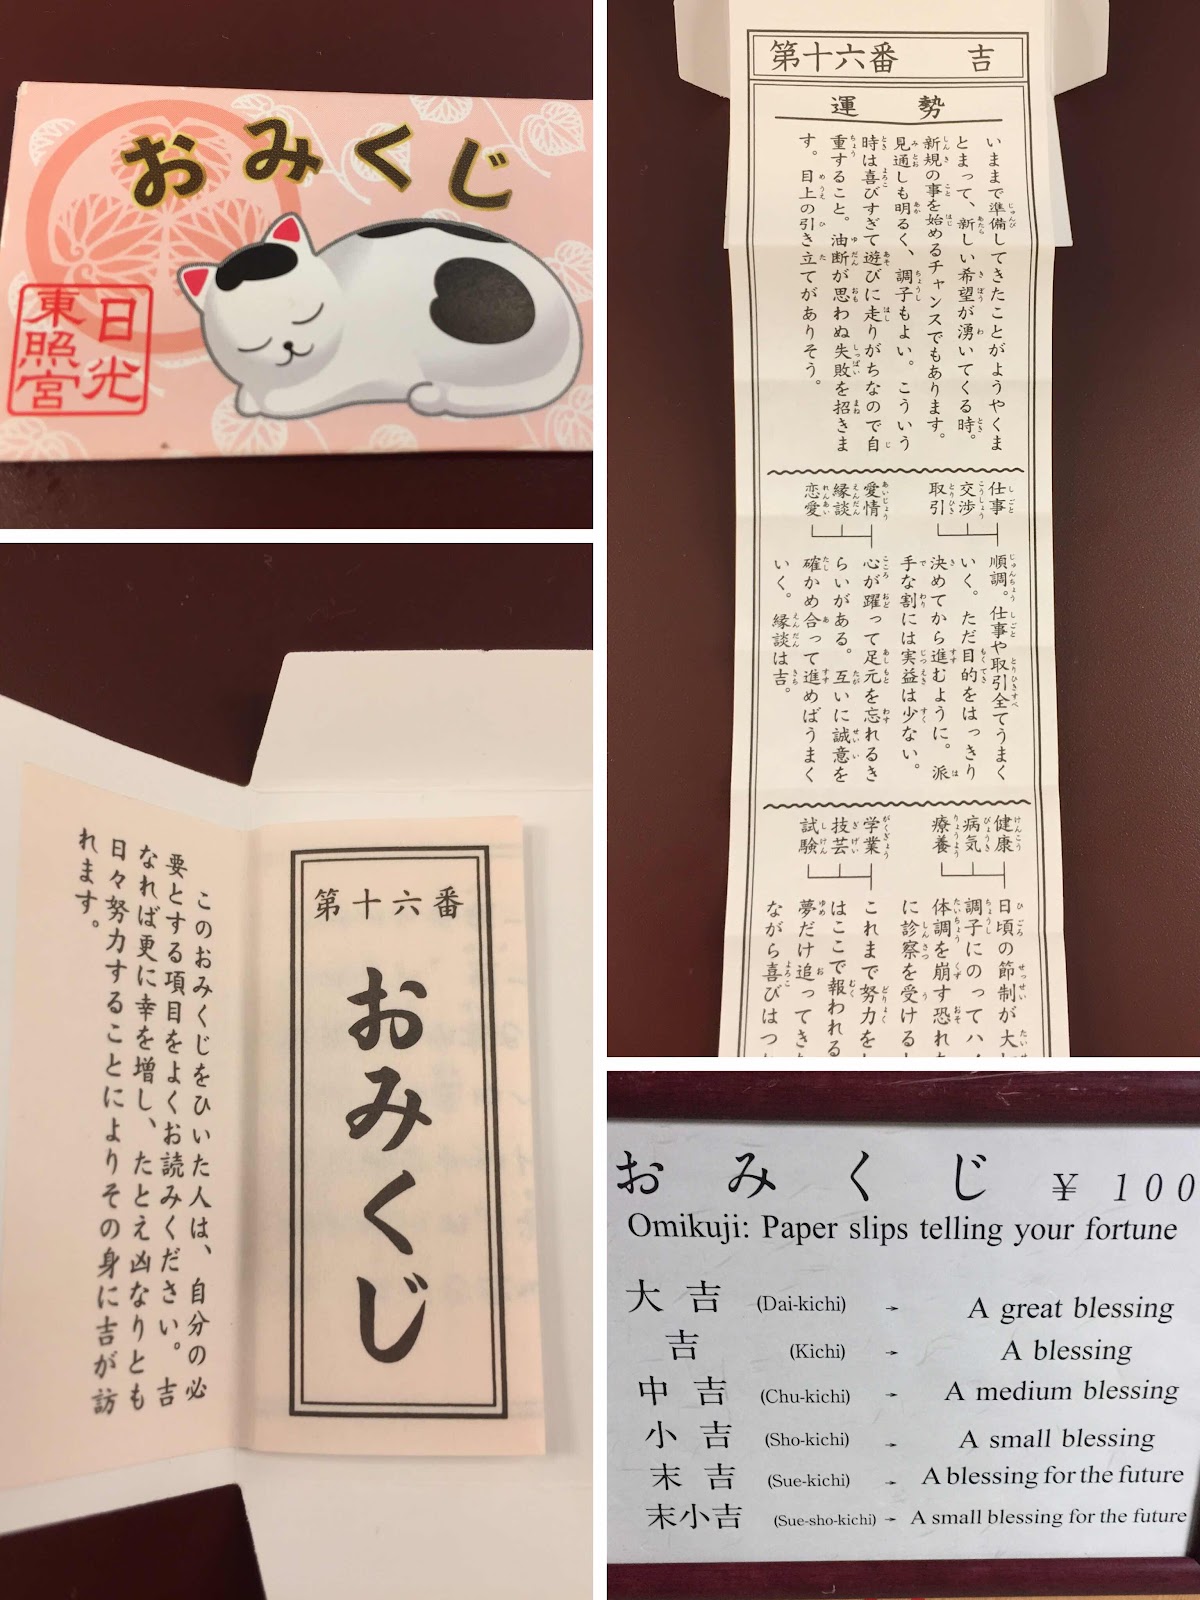 おみくじ
日光
東照宮
第十六番 吉
運勢
いままで準備してきたことがようやくま
とまって、新しい希望が湧いてくる時。
新規の事を始めるチャンスでもあります。
見通しも明るく、調子もよい。こういう
時は喜びすぎて遊びに走りがちなので自
重すること。油断が思わぬ失敗を招きま
す。目上の引き立てがありそう。
仕事
交渉
取引
順調。仕事や取引全てうまく
いく。ただ目的をはっきり
決めてから進むように。派
手な割には実益は少ない。
愛情
縁談
恋愛
心が躍って足元を忘れるき
らいがある。互いに誠意を
確かめ合って進めばうまく
いく。縁談は吉。
健康
病気
療養
日頃の節制が大
調子にのってハ
体調を崩す恐れ
に診察を受ける
学業
技芸
試験
これまで努力を
はここで報われる
夢だけ追ってき
ながら喜びはつ
このおみくじをひいた人は、自分の必
要とする項目をよくお読みください。吉
なれば更に幸を増し、たとえ凶なりとも
日々努力することによりその身に吉が訪
れます。
第十六番
おみくじ
おみくじ ¥100
Omikuji: Paper slips telling your fortune
大吉 (Dai-kichi) → A great blessing
吉 (Kichi) → A blessing
中吉 (Chu-kichi) → A medium blessing
小吉 (Sho-kichi) → A small blessing
末吉 (Sue-kichi) → A blessing for the future
末小吉 (Sue-sho-kichi) → A small blessing for the future